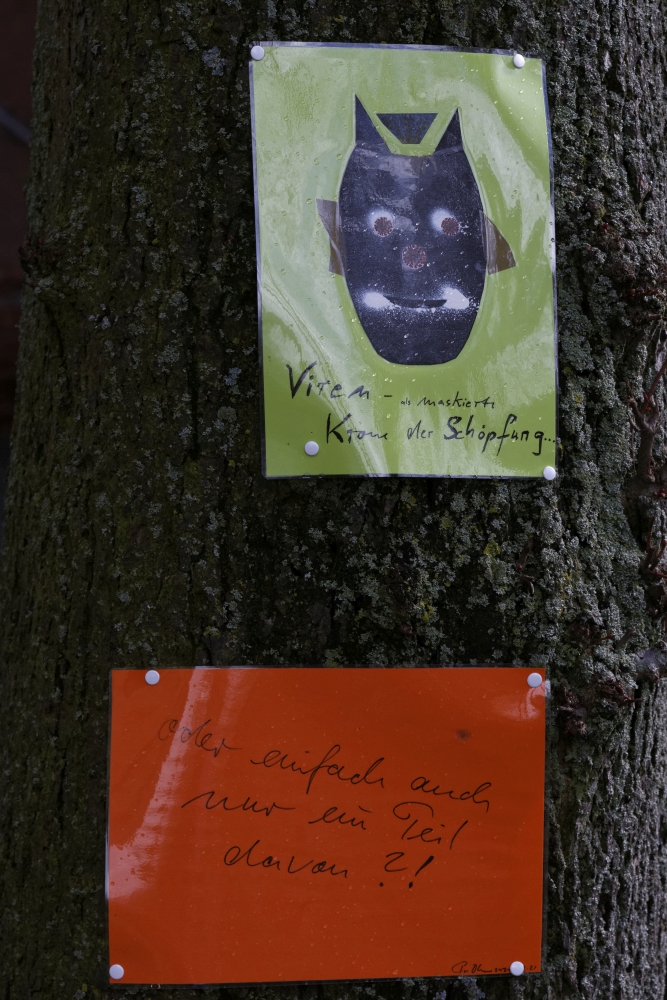 Viren - als maskierte
Krone der Schöpfung...
oder einfach auch
nur ein Teil
davon ?!